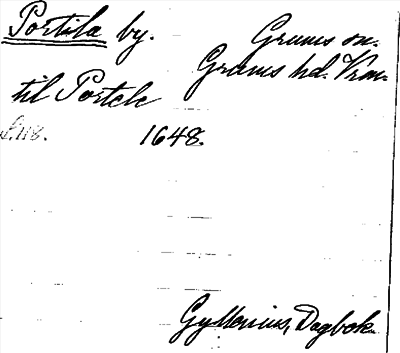 Portila by. Grums sn.
Grums hd. Vrm.
til Portele
s. 118. 1648.
Gyllenius, Dagbok